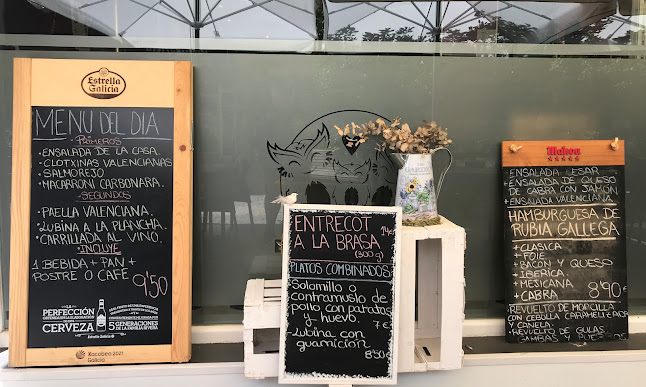 Estrella
Galicia
MENÚ DEL DIA
PRIMEROS
• ENSALADA DE LA CASA.
• CLOTXINAS VALENCIANAS
• SALMOREJO
• MACARRONI CARBONARA.
• SEGUNDOS
• PAELLA VALENCIANA.
• LUBINA A LA PLANCHA.
• CARRILLADA AL VINO.
• INCLUYE
1 BEBIDA + PAN +
POSTRE O CAFÉ
9'50
LA
PERFECCIÓN
CERVEZA
5 GENERACIONES
DE LA FAMILIA RIVERA
Estrella Galicia
Xacobeo 2021
Galicia
ENTRECOT
A LA BRASA
14€
(300g)
PLATOS COMBINADOS
• Solomillo o
contramuslo de
pollo con patatas
y huevo.
7€
• Lubina con
guarnición
8'50
Mahou
ENSALADA CESAR
+ ENSALADA DE QUESO
DE CABRA CON JAMÓN
+ ENSALADA VALENCIANA
HAMBURGUESA DE
RUBIA GALLEGA
+ CLASICA
+ FOIE
+ BACON Y QUESO
+ IBERICA
+ MEXICANA
+ CABRA
8'90
REVUELTO DE MORCILLA
CON CEBOLLA CARAMELIZADA
Y CANELA
REVUELTO DE GULAS